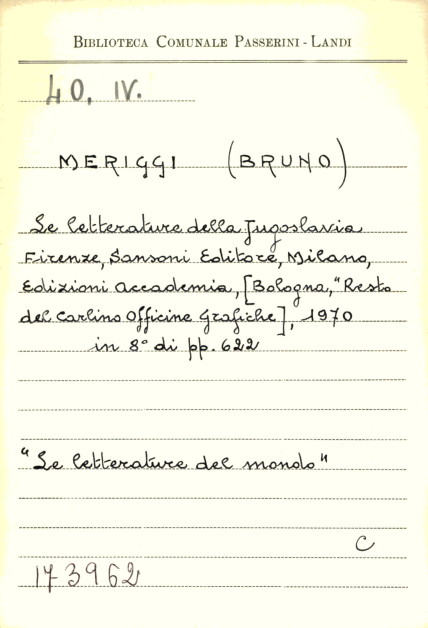 BIBLIOTECA COMUNALE PASSERINI - LANDI
40, IV.
MERIGGI (BRUNO)
Le letterature della Jugoslavia
Firenze, Sansoni Editore, Milano,
Edizioni Accademia, [Bologna, "Resto
del Carlino Officine Grafiche], 1970
in 8° di pp. 622
"Le letterature del mondo"
C
173962